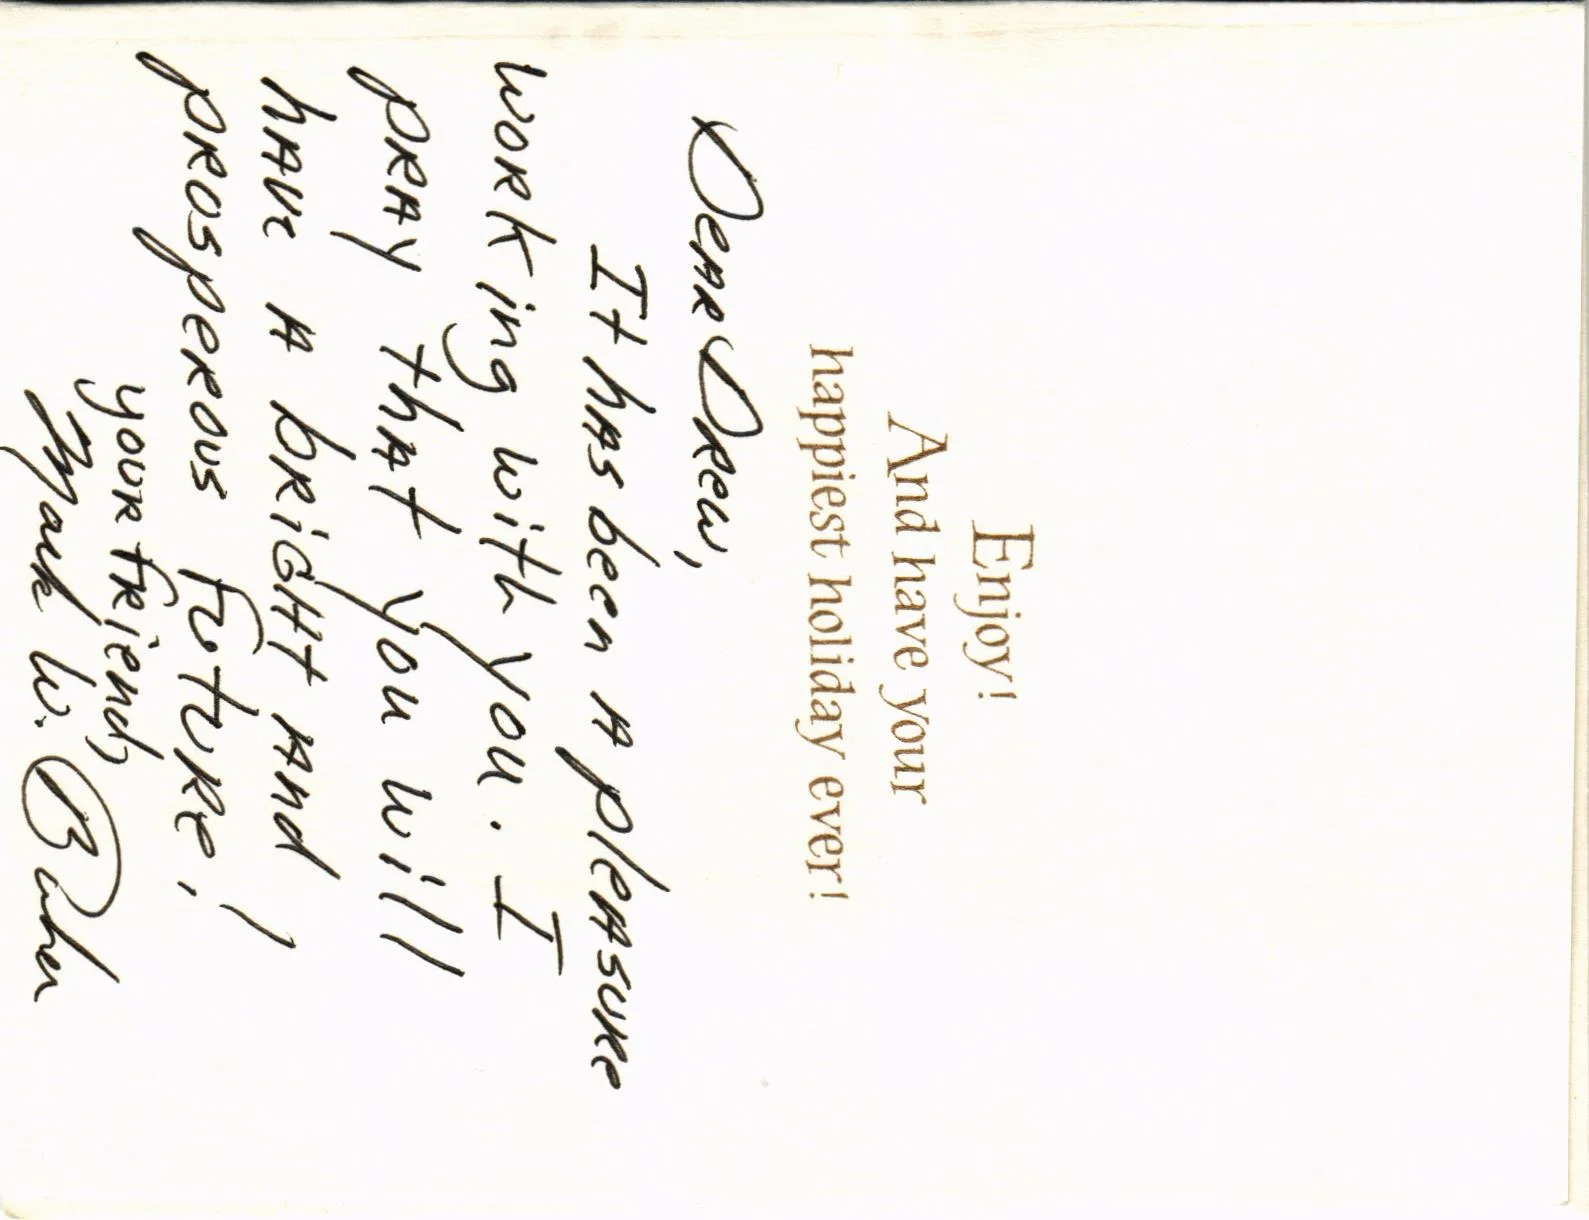 Enjoy!
And have your
happiest holiday ever!
Dear Drew,
It has been a pleasure
working with you. I
pray that you will
have a bright and
prosperous future!
your friend,
Mark W.